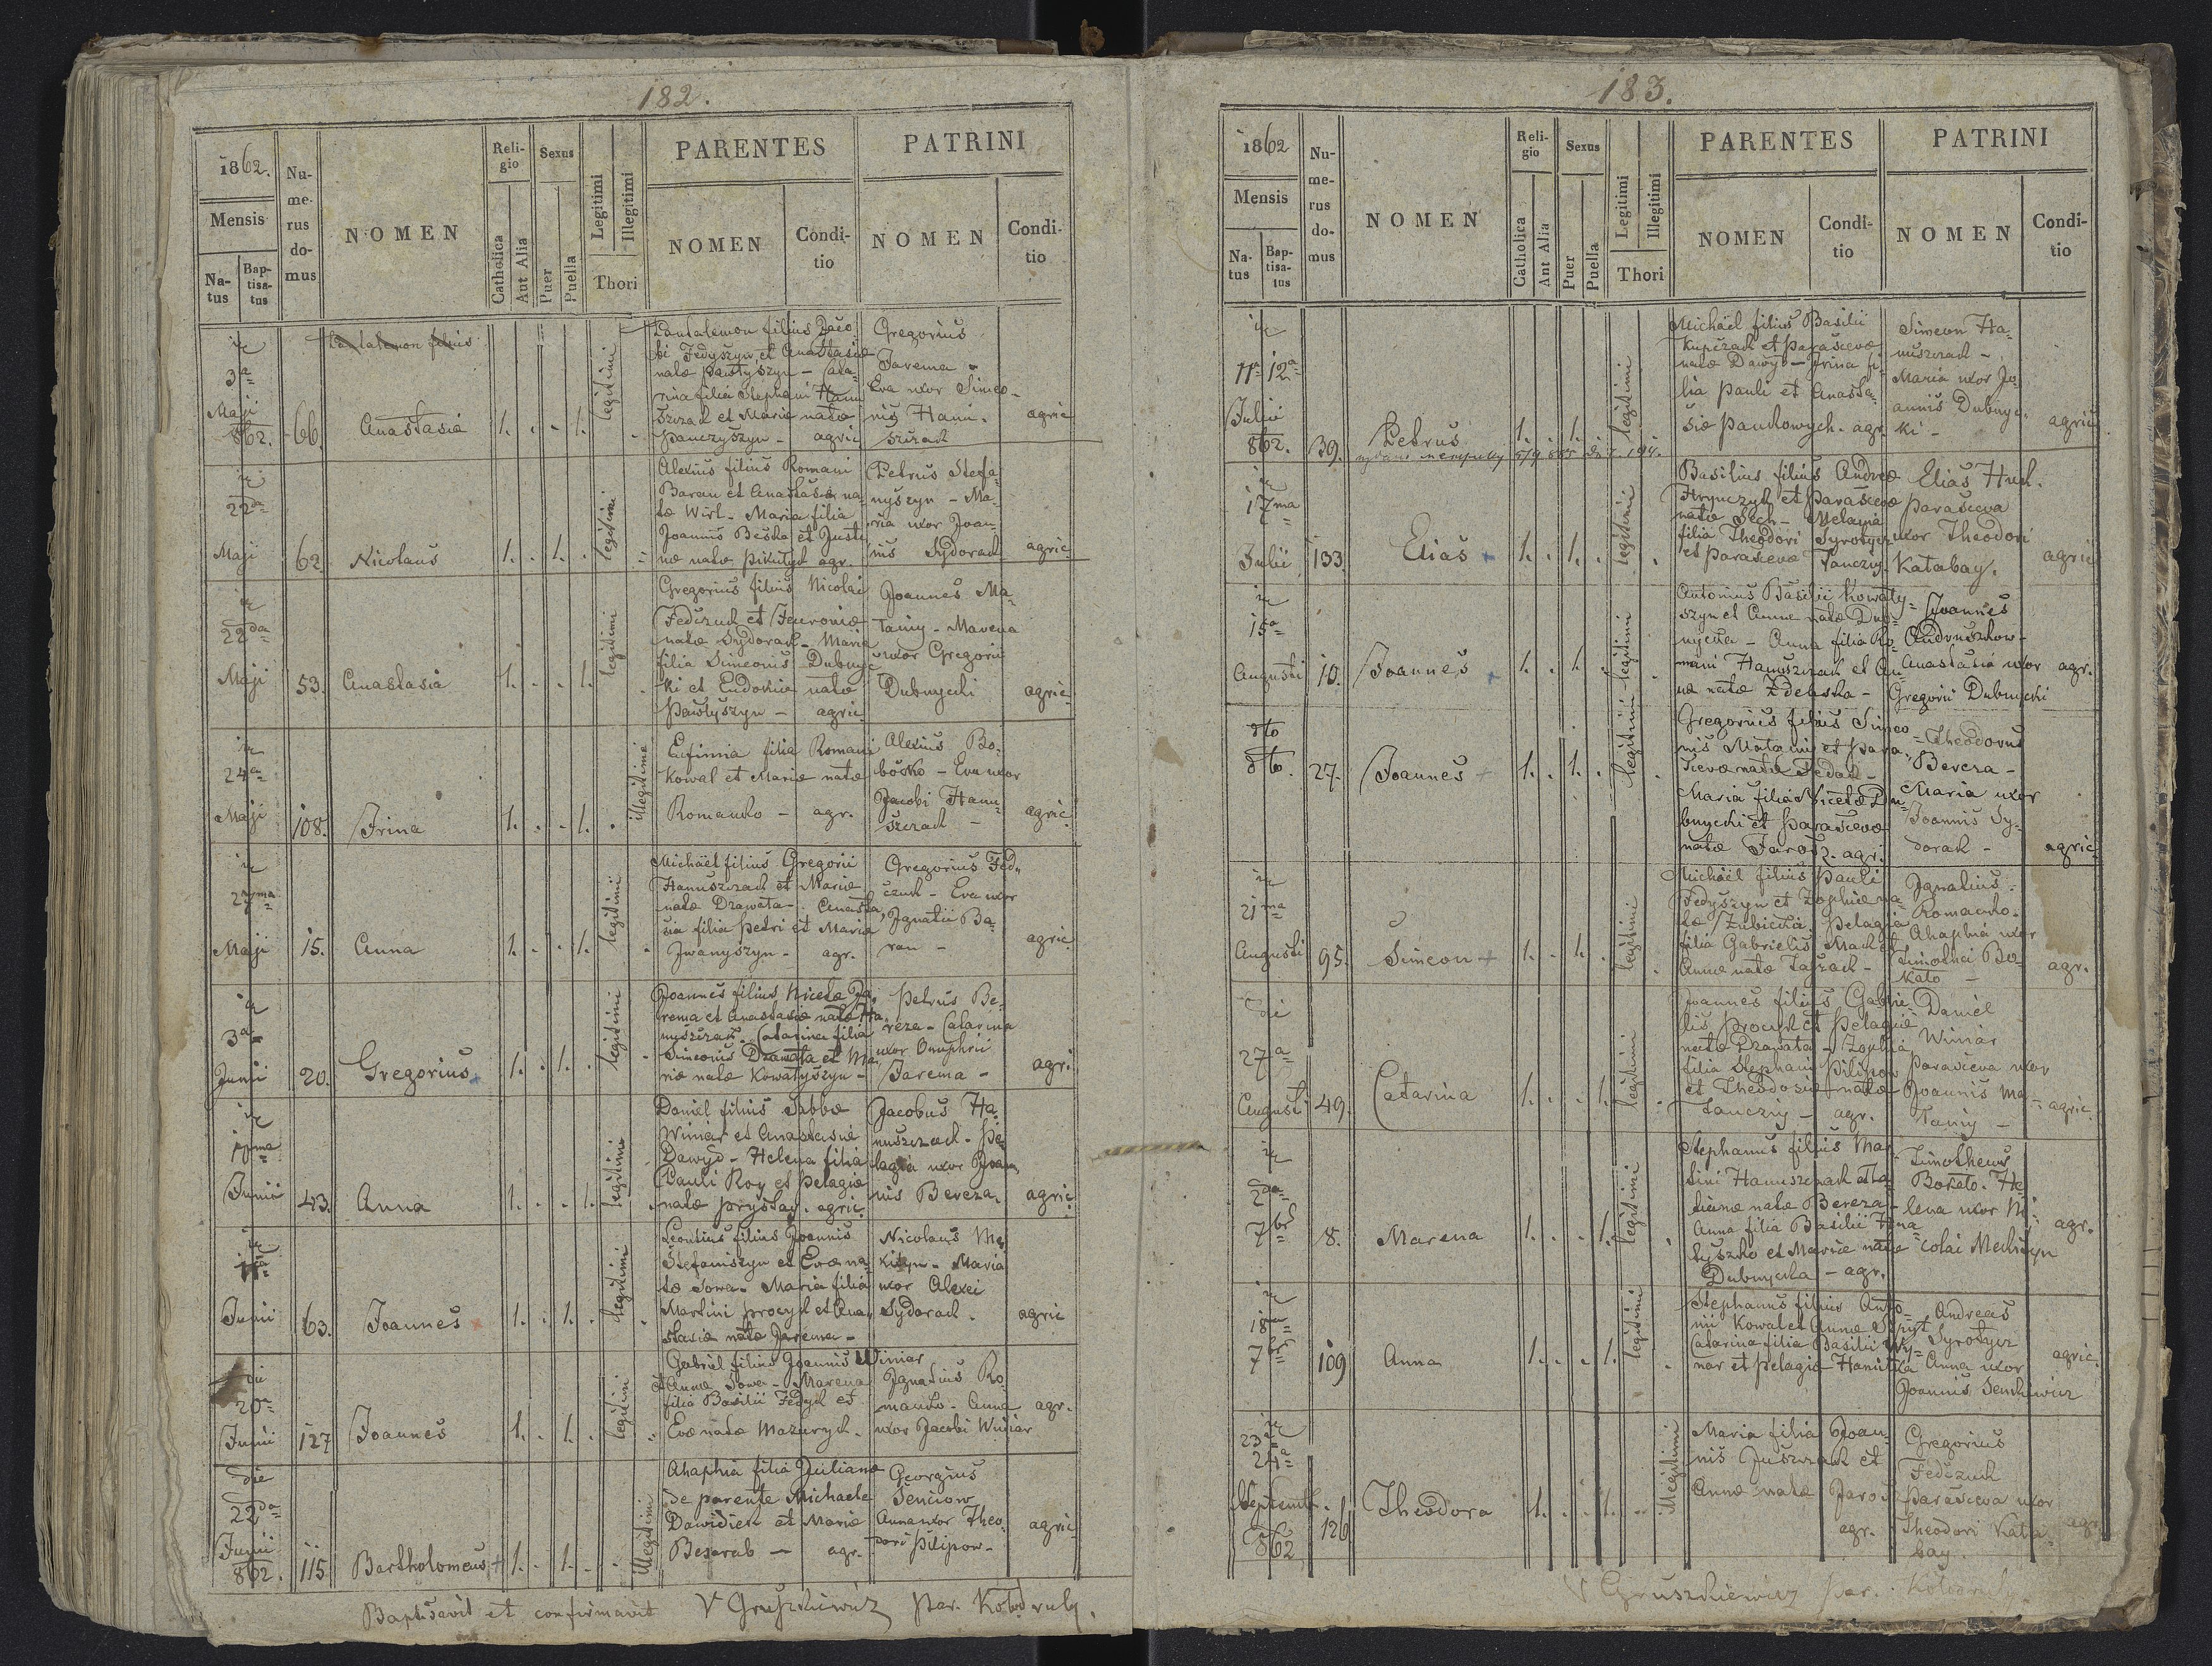 182.
1862.
Mensis
Na-
tus
Bap-
tisa-
tus
Nu-
me-
rus
do-
mus
NOMEN
Reli-
gio
Catholica
Aut Alia
Sexus
Puer
Puella
Legitimi
Illegitimi
Thori
PARENTES
NOMEN
Condi-
tio
PATRINI
NOMEN
Condi-
tio
3a
Maji
862.
66.
Anastasia
1. . . 1.
legitimi
Pantalemon filius Jaco
bi Fedyszyn, et Anastasiæ
natæ Pawłyszyn - Cata-
rina filia Stephani Hanu
szczak et Mariæ natæ
Panczyszyn - agric
Gregorius
Jarema -
Eva uxor Simeo-
nis Hanu-
szczak
agric
22da
Maji
62.
Nicolaus
1. . 1. .
legitimi
Alexius filius Romani
Baran et Anastasiæ na-
tæ Wirl - Maria filia
Joannis Beska et Justi
næ natæ Pikulyk agr.
Petrus Stefa-
nyszyn - Ma-
ria uxor Joan-
nis Sydorak
agric
22da
Maji
53.
Anastasia
1. . . 1.
legitimi
Gregorius filius Nicolai
Fedczuk et Fevroniæ
natæ Sydorak - Maria
filia Simeonis Dubnyc
ki et Eudoxiæ natæ
Pawłyszyn - agric
Joannes Ma-
taniy - Marena
uxor Gregorii
Dubnycki
agric
24a
Maji
108.
Irina
1. . . 1.
illegitimi
Eufimia filia Romani
Kowal et Mariæ natæ
Romanko - agr.
Alexius Bo-
bosko - Eva uxor
Jacobi Hanu-
szczak -
agric
27ma
Maji
15.
Anna
1. . . 1.
legitimi
Michaël filius Gregorii
Hanuszczak et Mariæ
natæ Drawata - Anasta
sia filia Petri et Maria
Iwanyszyn - agr.
Gregorius Fed-
czuk - Eva uxor
Ignatii Ba-
ran -
agric
3a
Juni
20.
Gregorius
1. . 1. .
legitimi
Joannes filius Nicetæ Ja-
rema et Anastasiæ natæ Ha-
nuszczak. Catarina filia
Simeonis Drawata et Ma-
riæ natæ Kowalyszyn -
Petrus Be-
reza - Catarina
uxor Onuphrii
Jarema -
agri.
Junii
43.
Anna
1. . . 1.
legitimi
Daniel filius Sabbæ
Winiar et Anastasiæ
Dawyd - Helena filia
Pauli Roy et Pelagiæ
natæ Prystay. agric.
Jacobus Ha-
nuszczak - Pe-
lagia uxor Joan-
nis Bereza.
agric.
Junii
63.
Joannes
1. . 1. .
legitimi
Leontius filius Joannis
Stefaniszyn et Evæ na-
tæ Sowa - Maria filia
Martini Procyk et Ana-
stasiæ natæ Jarema -
Nicolaus Me-
kityn - Maria
uxor Alexei
Sydorak.
agric
die
20a
Junii
127
Joannes
1. . 1. .
legitimi
Gabriel filius Joannis Winiar
et Annæ Sowa - Marena
filia Basilii Fedyk et
Evæ natæ Mazuryk.
Ignatius Ro-
manko - Anna
uxor Jacobi Winiar
agr.
die
22da
Junii
862.
115
Bartholomeus +
1. . 1. .
illegitimi
Ahaphia filia Julianæ
de parente Michaele
Dawidiek et Mariæ
Besarab - agr.
Georgius
Senciow
Anna uxor Theo-
dori Pilipow -
agric
Baptisavit et confirmavit V Gruszkiewicz par. Kołodruby.
183.
1862
Mensis
Na-
tus
Bap-
tisa-
tus
Nu-
me-
rus
do-
mus
NOMEN
Reli-
gio
Catholica
Aut Alia
Sexus
Puer
Puella
Legitimi
Illegitimi
Thori
PARENTES
NOMEN
Condi-
tio
PATRINI
NOMEN
Condi-
tio
11a 12a
Julii
862.
39.
Petrus
1. . 1. .
legitimi
Michaël filius Basilii
Kupczak et Parascevæ
natæ Dawyd - Irina fi-
lia Pauli et Anasta-
siæ Pankowych. agr.
Simeon Ha-
nuszczak -
Maria uxor Jo-
annis Dubnyc-
ki -
agric
17ma
Julii
133.
Elias
1. . 1. .
legitimi
Basilius filius Andreæ
Hrynczyk et Parascevæ
natæ Sech - Melania
filia Theodori Syrotycz
et Parascevæ Tanczy.
Elias Huk.
Parasceva
uxor Theodori
Katabay.
agric
15a
Augusti
10.
Joannes
1. . 1. .
legitimi
Antonius Basilii Kowaly-
szyn et Annæ natæ Dub-
nycka - Anna filia Ro-
mani Hanuszczak et An-
næ natæ Zdebska -
Joannes
Andruszkow -
Anastasia uxor
Gregorii Dubnycki
agr.
dto
dto.
27.
Joannes +
1. . 1. .
legitimi
Gregorius filius Simeo-
nis Mataniy et Para-
scevæ natæ Fedak -
Maria filia Nicetæ Du-
bnycki et Parascevæ
natæ Jarosz. agri.
Theodorus
Bereza -
Maria uxor
Joannis Sy-
dorak -
agric.
21ma
Augusti
95.
Simeon +
1. . 1. .
legitimi
Michaël filius Pauli
Fedyszyn et Zophiæ na-
tæ Zubicka. Pelagia
filia Gabrielis Mack et
Annæ natæ Taszak -
Ignatius
Romanko.
Ahaphia uxor
Timothei Bo-
kato -
agr.
di
27a
Augusti
49.
Catarina
1. . . 1.
legitimi
Joannes filius Gabrie
lis Procyk et Pelagiæ
natæ Drawata - Zophia
filia Stephani Pilipow
et Theodosiæ natæ
Tancziy - agr.
Daniel
Winiar
Parasceva uxor
Joannis Ma-
taniy -
agric.
2da
7bris
8.
Marena
1. . . 1.
legitimi
Stephanus filius Mar-
tini Hanuszczak et Ta-
tianæ natæ Bereza -
Anna filia Basilii Hna
tyszko et Mariæ natæ
Dubnycka - agr.
Timotheus
Bokato. He-
lena uxor Ni-
colai Mekityn
agr.
18a
7bris
109
Anna
1. . . 1.
legitimi
Stephanus filius Anto-
nii Kowal et Annæ
Catarina filia Basilii Wy-
nar et Pelagiæ
Andreas
Syrotycz
Anna uxor
Joannis Senkiwicz
agric.
23a
24a
Septemb.
862
126
Theodora
1. . . 1.
illegitimi
Maria filia Joan-
nis Juszczak et
Annæ natæ Jaros
agr.
Gregorius
Fedczuk
Parasceva uxor
Theodori Kata-
bay.
agr
V Gruszkiewicz par. Kołodruby